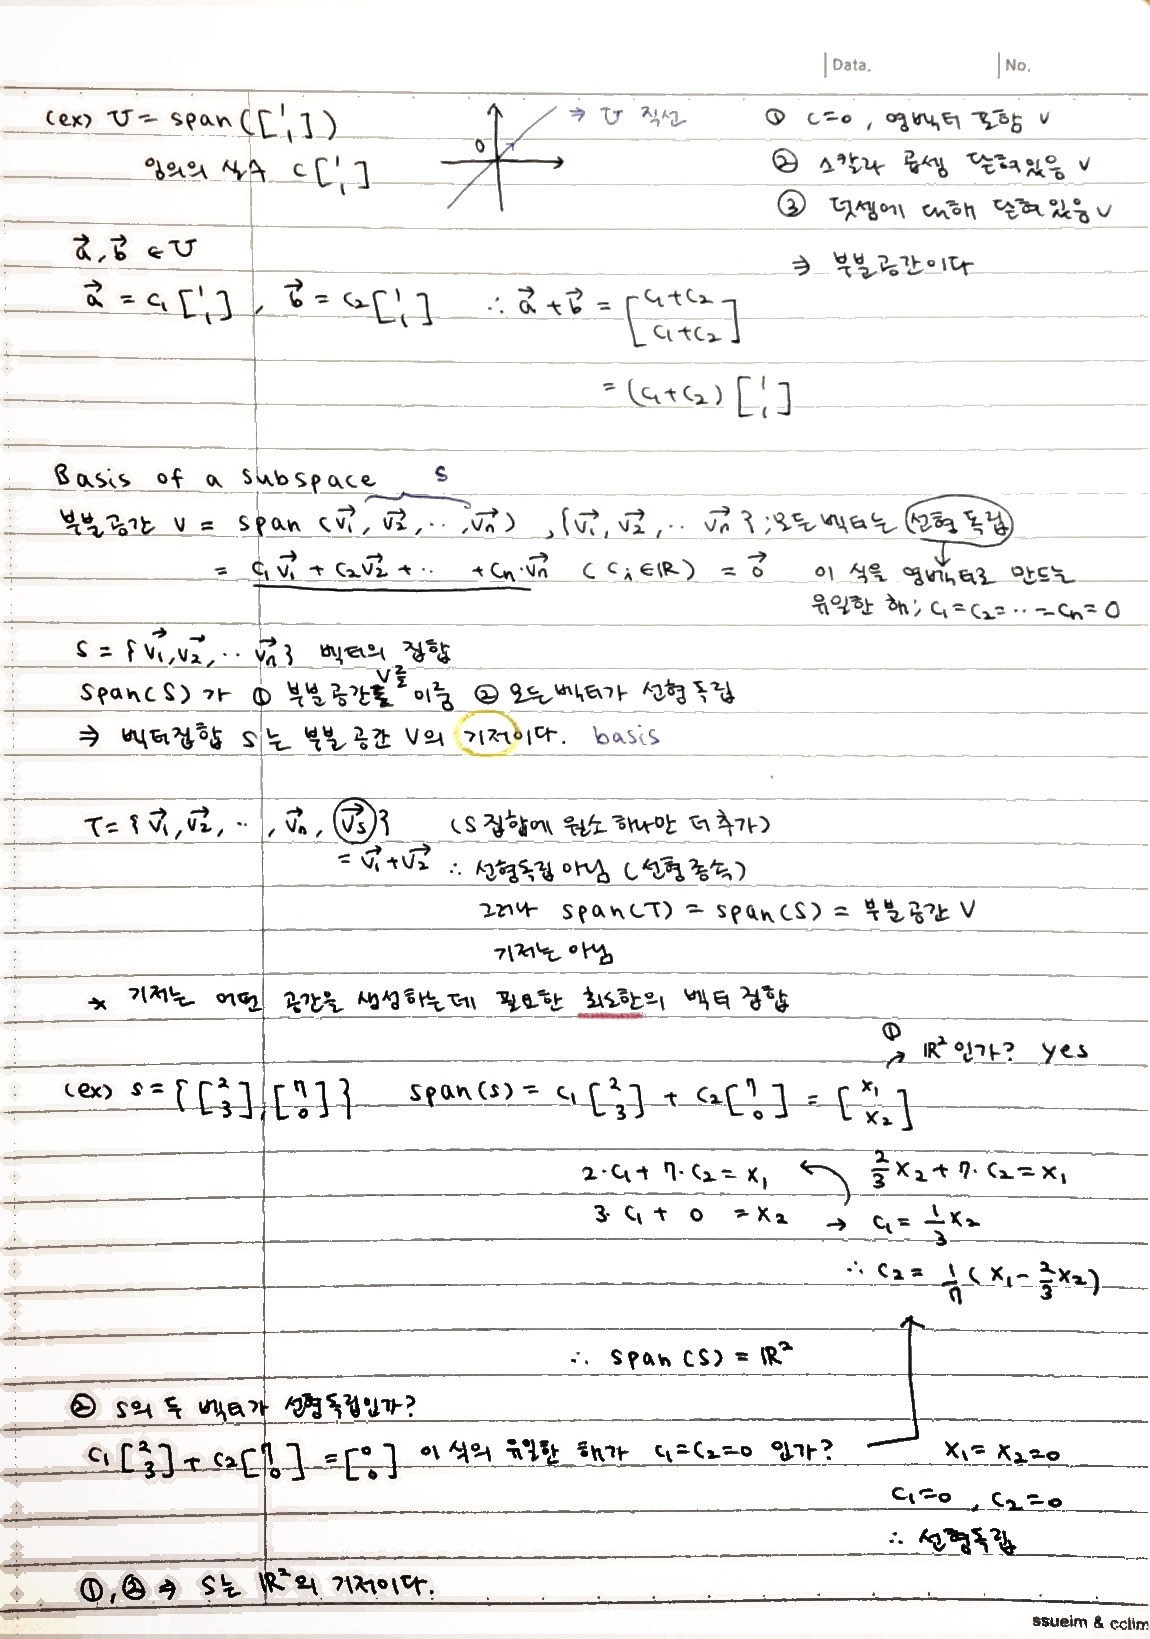 Data.
No.
(ex) U = span([1 1])
임의의 실수 c[1 1]
0
⇒ U 직선
① c=0, 영벡터 포함 ∨
② 스칼라 곱셈 닫혀있음 ∨
③ 덧셈에 대해 닫혀있음 ∨
⇒ 부분공간이다
a⃗, b⃗ ∈ U
a⃗ = c₁[1 1], b⃗ = c₂[1 1] ∴ a⃗ + b⃗ = [c₁+c₂ c₁+c₂]
= (c₁+c₂) [1 1]
Basis of a subspace
S
부분공간 V = span (v₁⃗, v₂⃗, ‥, vₙ⃗), {v₁⃗, v₂⃗, ‥ vₙ⃗}; 모든 벡터는 선형 독립
= c₁v₁⃗ + c₂v₂⃗ + ‥ + cₙ·vₙ⃗ (cᵢ ∈ ℝ) = 0⃗ 이 식을 영벡터로 만드는
유일한 해; c₁ = c₂ = ‥ = cₙ = 0
S = {v₁⃗, v₂⃗, ‥ vₙ⃗} 벡터의 집합
span(S)가 ① 부분공간 V를 이룸 ② 모든 벡터가 선형독립
⇒ 벡터집합 S는 부분공간 V의 기저이다. basis
T = {v₁⃗, v₂⃗, ‥, vₙ⃗, vₛ⃗} (S 집합에 원소 하나만 더 추가)
= v₁⃗ + v₂⃗ ∴ 선형독립 아님 (선형 종속)
그러나 span(T) = span(S) = 부분공간 V
기저는 아님
* 기저는 어떤 공간을 생성하는데 필요한 최소한의 벡터 집합
① → ℝ² 인가? yes
(ex) S = {[2 3], [7 0]} span(S) = c₁[2 3] + c₂[7 0] = [x₁ x₂]
2·c₁ + 7·c₂ = x₁ ← 2/3 x₂ + 7·c₂ = x₁
3·c₁ + 0 = x₂ → c₁ = 1/3 x₂
∴ c₂ = 1/7 (x₁ - 2/3 x₂)
∴ span(S) = ℝ²
② S의 두 벡터가 선형독립인가?
c₁[2 3] + c₂[7 0] = [0 0] 이 식의 유일한 해가 c₁=c₂=0 인가? x₁ = x₂ = 0
c₁=0, c₂=0
∴ 선형독립
①, ② ⇒ S는 ℝ²의 기저이다.
ssueim & cclim